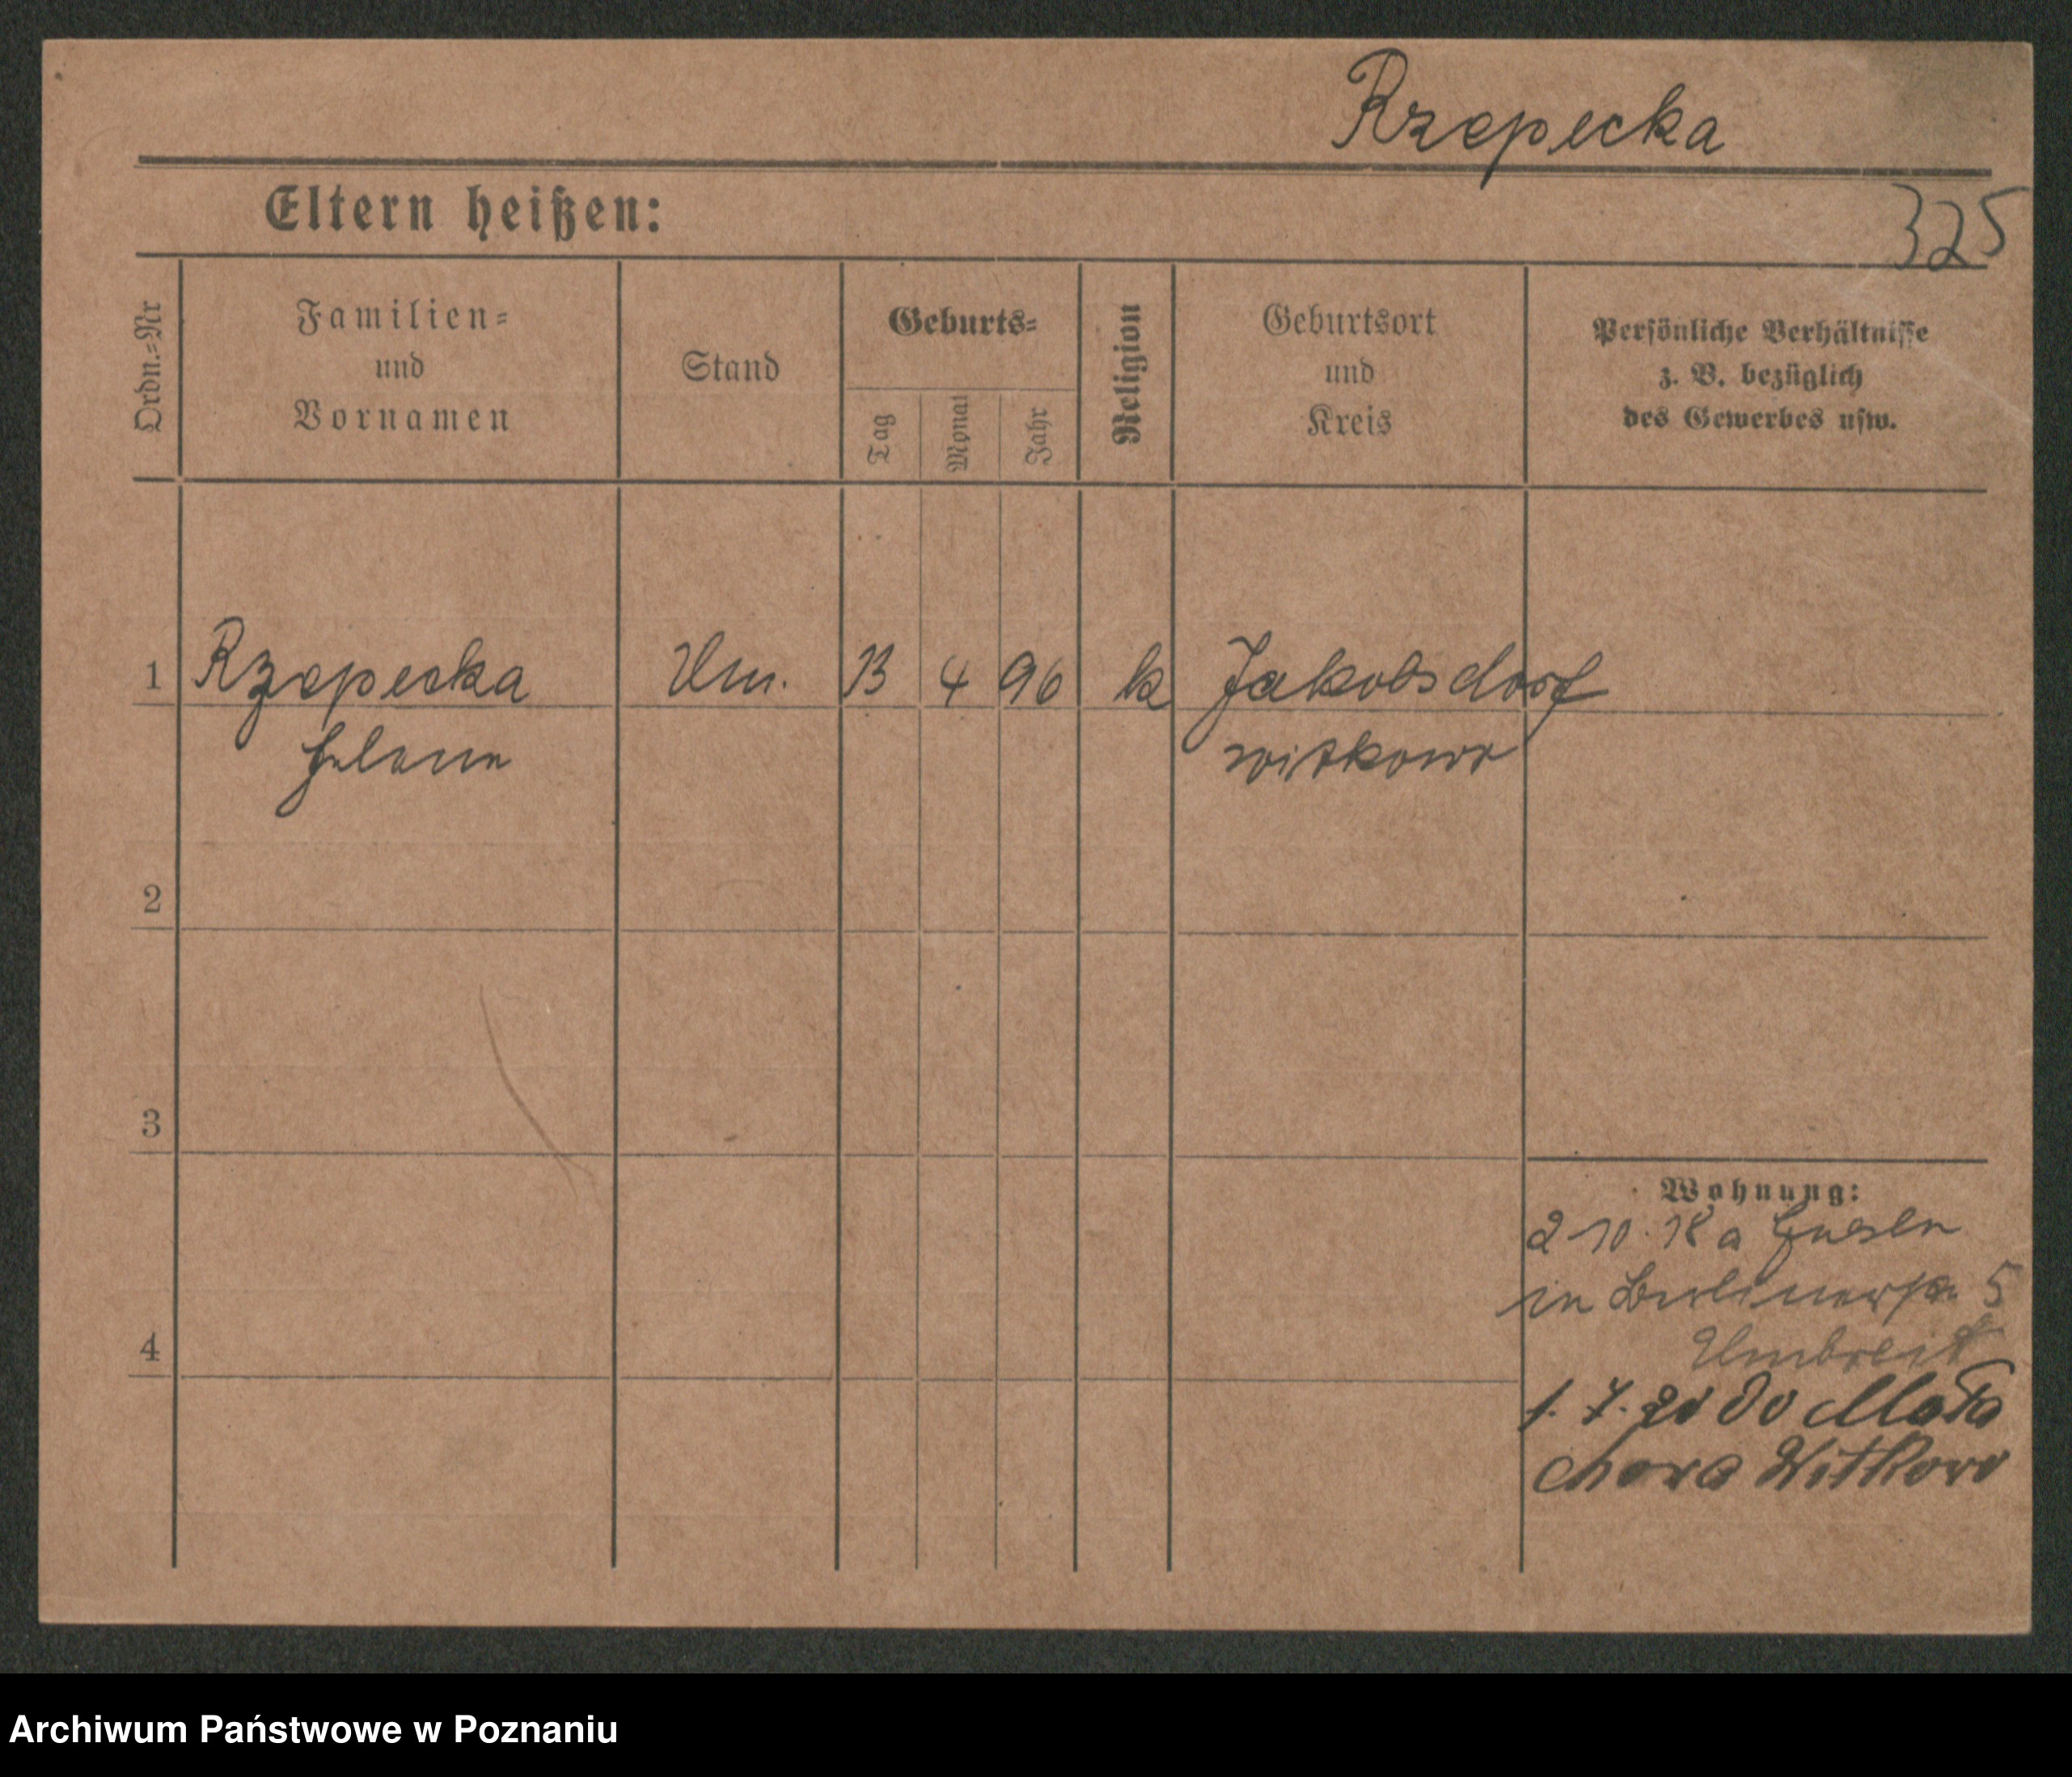 Rzepecka
325
Eltern heißen:
Ordn.=Nr
Familien=
und
Vornamen
Stand
Geburts=
Tag
Monat
Jahr
Religion
Geburtsort
und
Kreis
Persönliche Verhältnisse
z. B. bezüglich
des Gewerbes usw.
1 Rzepecka 13 4 96 k Jakobsdorf
Helene Witkowo
2
3
Wohnung:
2 10. 18 a Gnesen
in Berlinerstr. 5
4
Umbreit
1. 7. do
Witkowo
Archiwum Państwowe w Poznaniu